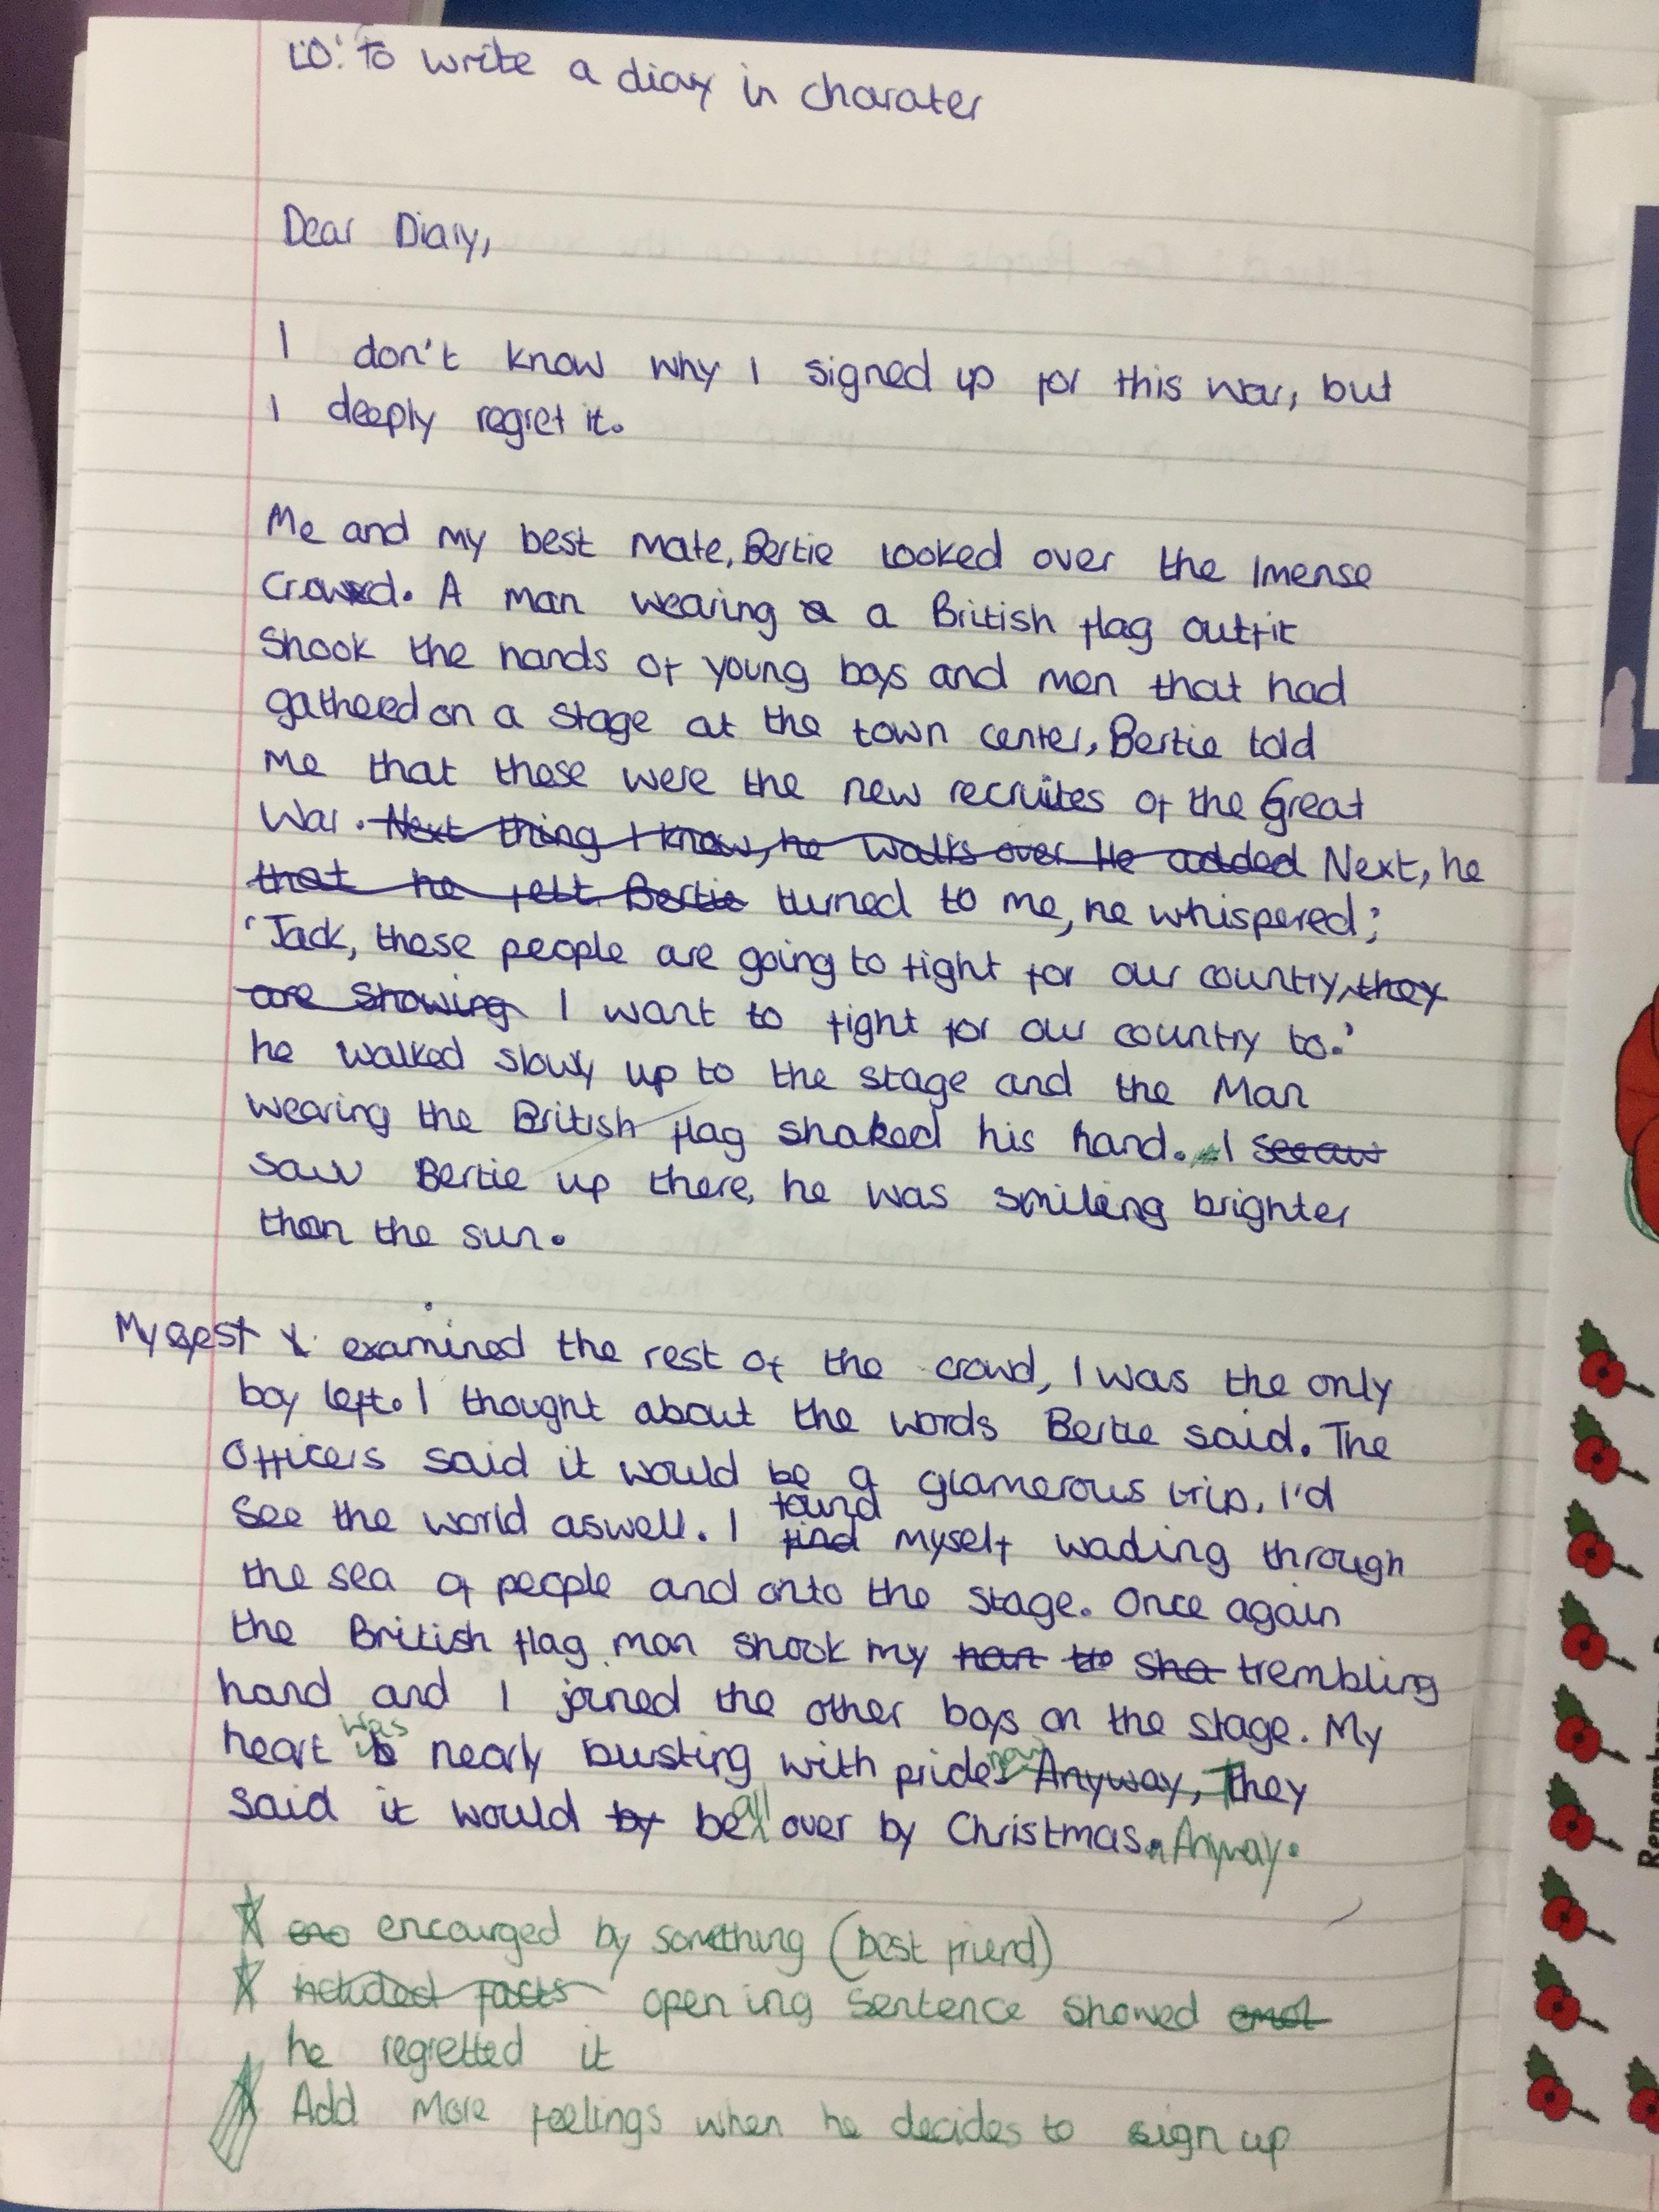 LO: To write a diary in charater
Dear Diary,
I don't know why I signed up for this war, but
I deeply regret it.
Me and my best mate, Bertie looked over the Imense
Crowd. A man wearing a a British flag outfit
Shook the hands of young boys and men that had
gatheed on a stage at the town center, Bertie told
me that these were the new recruites of the Great
War. Next thing I know, he walks over He added Next, he
that he felt Bertie turned to me, he whispered;
'Jack, these people are going to fight for our country, they
are showing I want to fight for our country to.'
he walked slowy up to the stage and the Man
wearing the British flag shaked his hand. I
saw Bertie up there, he was smiling brighter
than the sun.
examined the rest of the crowd, I was the only
boy left. I thought about the words Bertie said. The
Officers said it would be a glamerous trip, I'd
found
see the world aswell. I find myself wading through
the sea of people and onto the stage. Once again
the British flag man shook my trembling
hand and I joined the other boys on the stage. My
was
heart nearly busting with pride. Anyway, They
all
said it would by be over by Christmas. Anyway.
encourged by something (best friend)
included facts opening sentence showed
he regretted it
Add more feelings when he decides to sign up